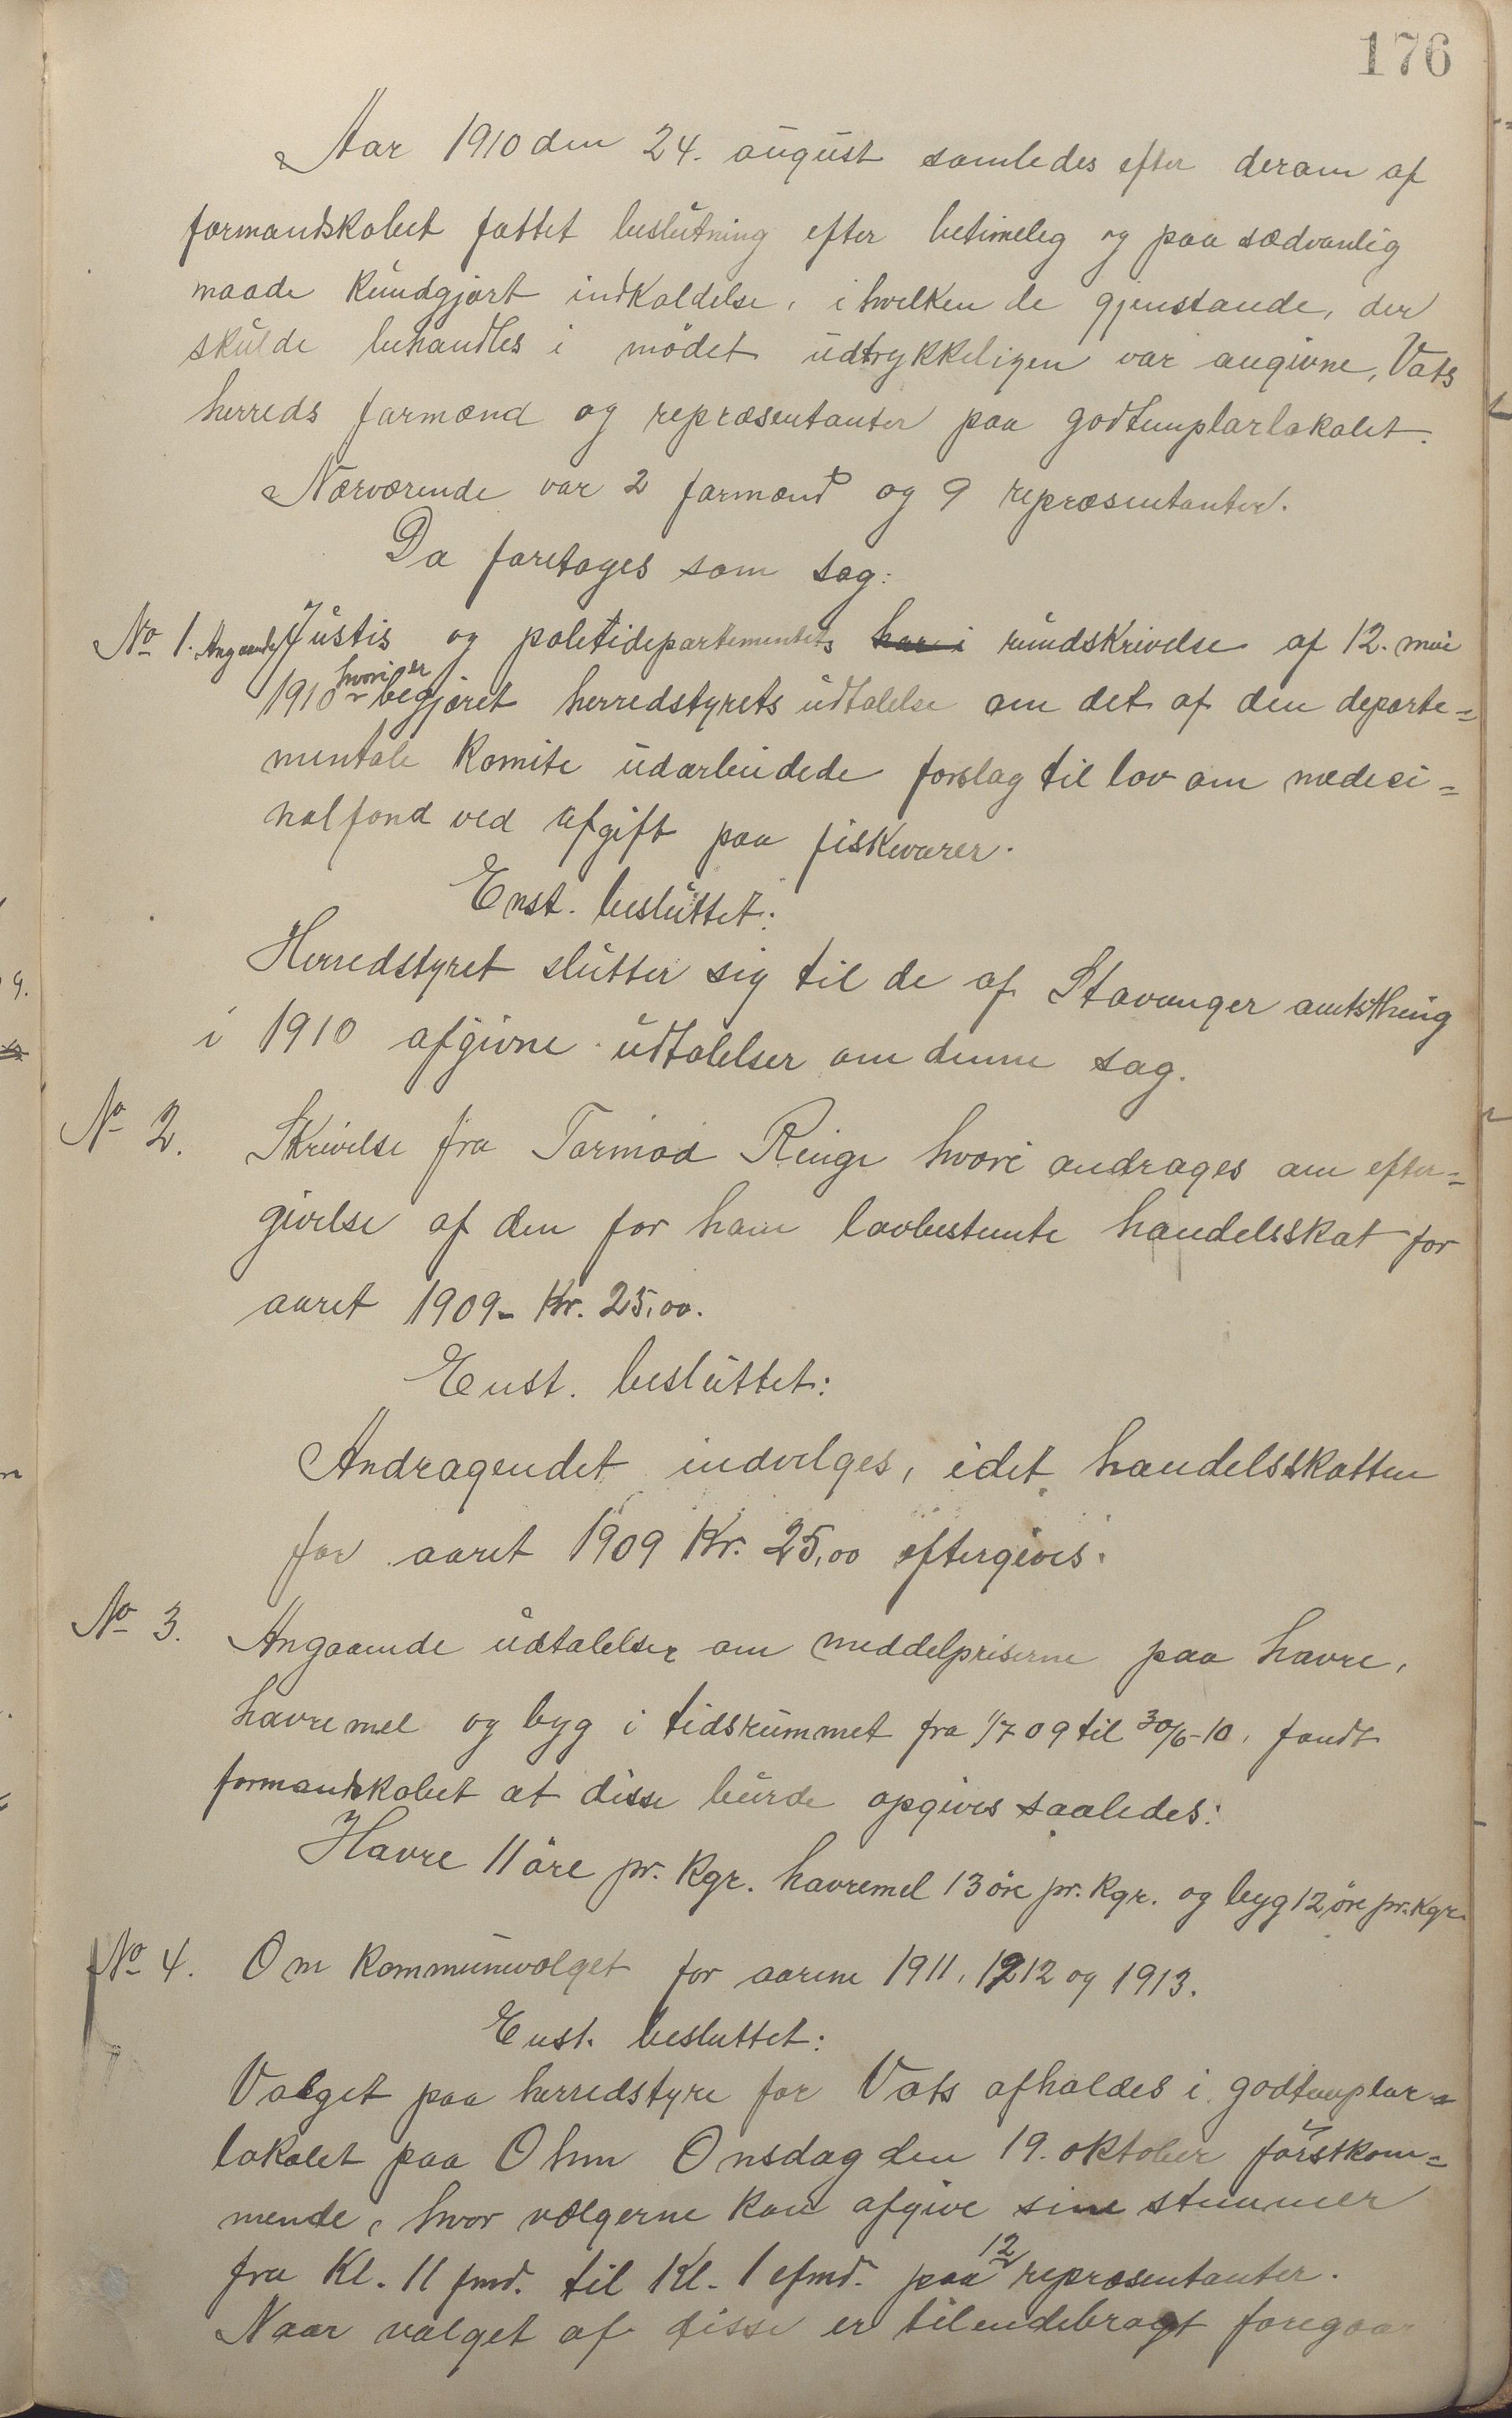 176
Aar 1910 den 24. august samledes efter derom af
formandskabet fattet beslutning efter betimelig og paa sædvanlig
maade kundgjort indkaldelse, i hvilken de gjenstande, der
skulde behandles i mødet udtrykkeligen var angivne, Vats
herreds formænd og repræsentanter paa godtemplarlokalet.
Nærværende var 2 formænd og 9 repræsentanter.
Da foretages som sag:
No 1. Angaaende Justis og politidepartementets har i rundskrivelse af 12. mai
1910 hvori er begjæret herredstyrets udtalelse om det af den departe=
mentale komite udarbeidede forslag til lov om medici=
nalfond ved afgift paa fiskevarer.
Enst. besluttet:
Herredstyret slutter sig til de af Stavanger amtsthing
i 1910 afgivne udtalelser om denne sag.
No 2. Skrivelse fra Tormod Ringe hvori andrages om efter=
givelse af den for ham lovbestemte handelsskat for
aaret 1909 - Kr. 25,00.
Enst. besluttet:
Andragendet indvilges, idet handelsskatten
for aaret 1909 Kr. 25,00 eftergives.
No 3. Angaaende udtalelser om meddelpriserne paa havre,
havremel og byg i tidsrummet fra 1/7 09 til 30/6-10, fandt
formandskabet at disse burde opgives saaledes:
Havre 11 øre pr. Kgr. havremel 13 øre pr. Kgr. og byg 12 øre pr. Kgr.
No 4. Om kommunevalget for aarene 1911, 1912 og 1913.
Enst. besluttet:
Valget paa herredstyre for Vats afholdes i godtemplar=
lokalet paa Ohm Onsdag den 19. oktober førstkom=
mende, hvor vælgerne kan afgive sine stemmer
fra Kl. 11 fmd. til Kl. 1 efmd. paa 12 repræsentanter.
Naar valget af disse er tilendebragt foregaar